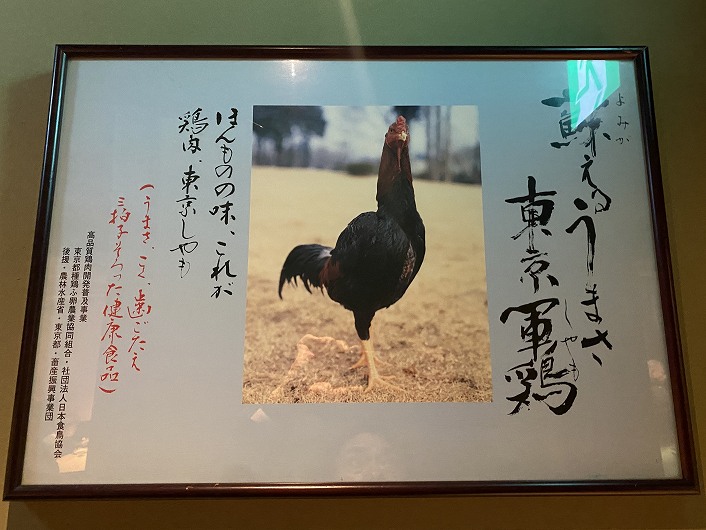 蘇えるうまさ
よみが
東京軍鶏
しゃも
ほんものの味、これが
鶏肉、東京しゃも
(うまさ、こく、歯ごたえ
三拍子そろった健康食品)
高品質鶏肉開発普及事業
東京都種鶏ふ卵農業協同組合・社団法人日本食鳥協会
後援・農林水産省・東京都・畜産振興事業団